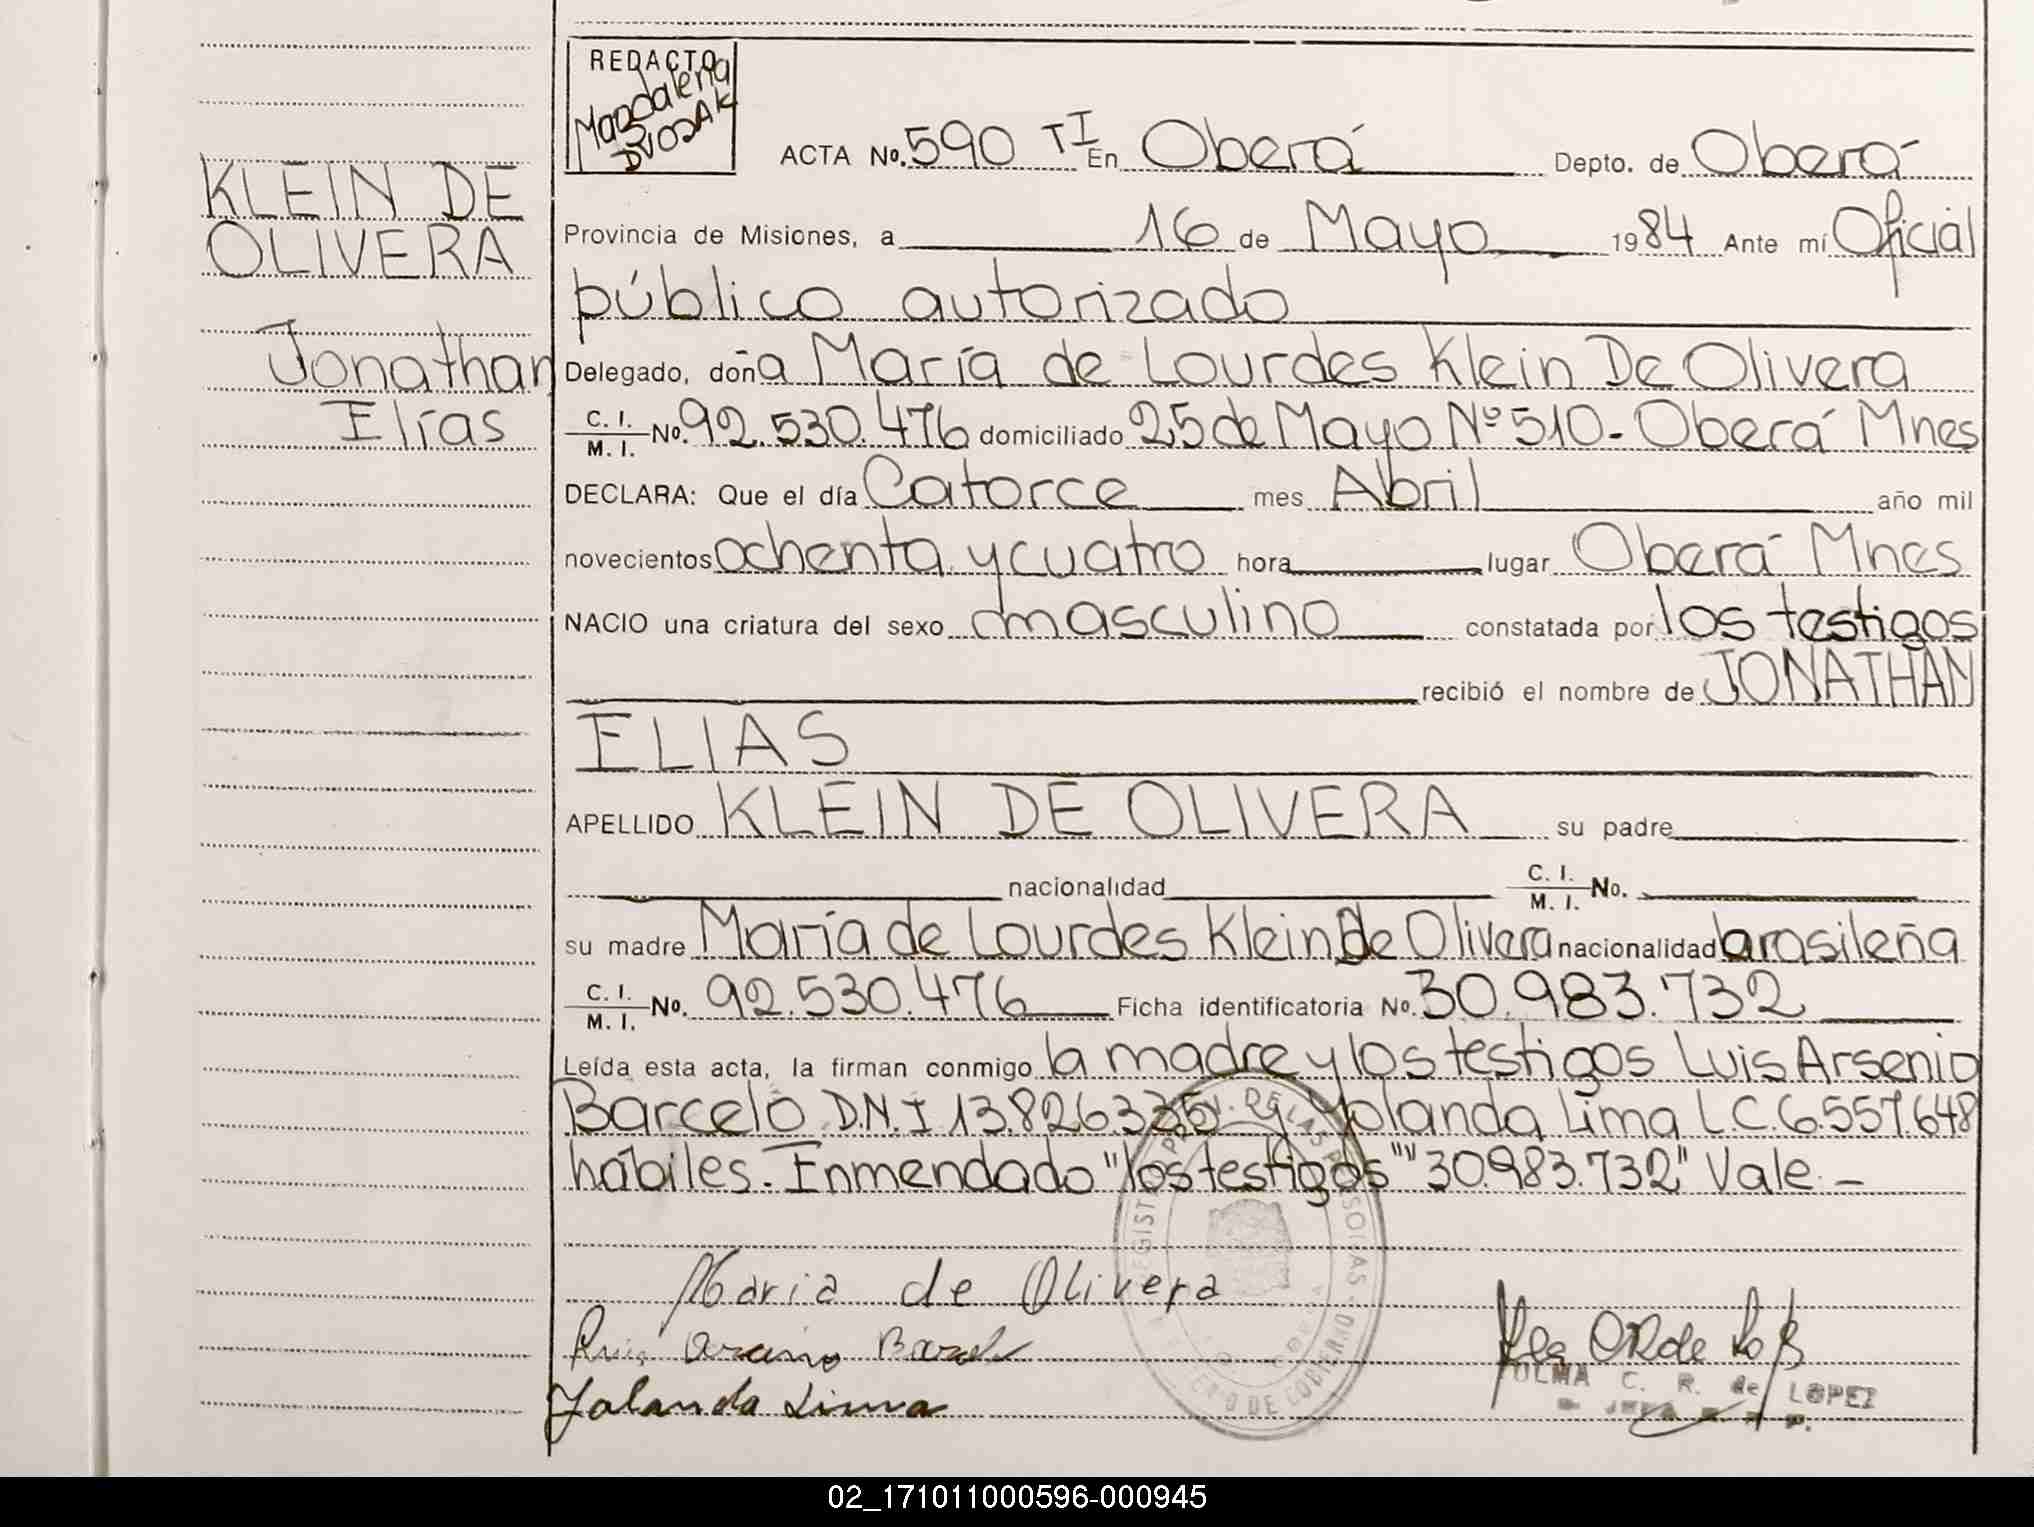 REDACTO
Magdalena
DVOSAK
ACTA No. 590 TI En Oberá Depto. de Oberá
KLEIN DE
OLIVERA
Jonathan
Elías
Provincia de Misiones, a 16 de Mayo 1984 Ante mí Oficial
público autorizado
Delegado, doña María de Lourdes Klein De Olivera
C. I. / M. I. No. 92.530.476 domiciliado 25 de Mayo Nº 510 - Oberá Mnes
DECLARA: Que el día Catorce mes Abril año mil
novecientos ochenta y cuatro hora lugar Oberá Mnes
NACIO una criatura del sexo masculino constatada por los testigos
recibió el nombre de JONATHAN
ELIAS
APELLIDO KLEIN DE OLIVERA su padre
nacionalidad C. I. / M. I. No.
su madre María de Lourdes Klein De Olivera nacionalidad brasileña
C. I. / M. I. No. 92.530.476 Ficha identificatoria No. 30.983.732
Leída esta acta, la firman conmigo la madre y los testigos Luis Arsenio
Barceló D.N.I 13.826.335 y Yolanda Lima L.C. 6.557.648
hábiles. Enmendado "los testigos" "30.983.732" Vale. -
Maria de Olivera
Yolanda Lima
C. R. de LOPEZ
02_171011000596-000945